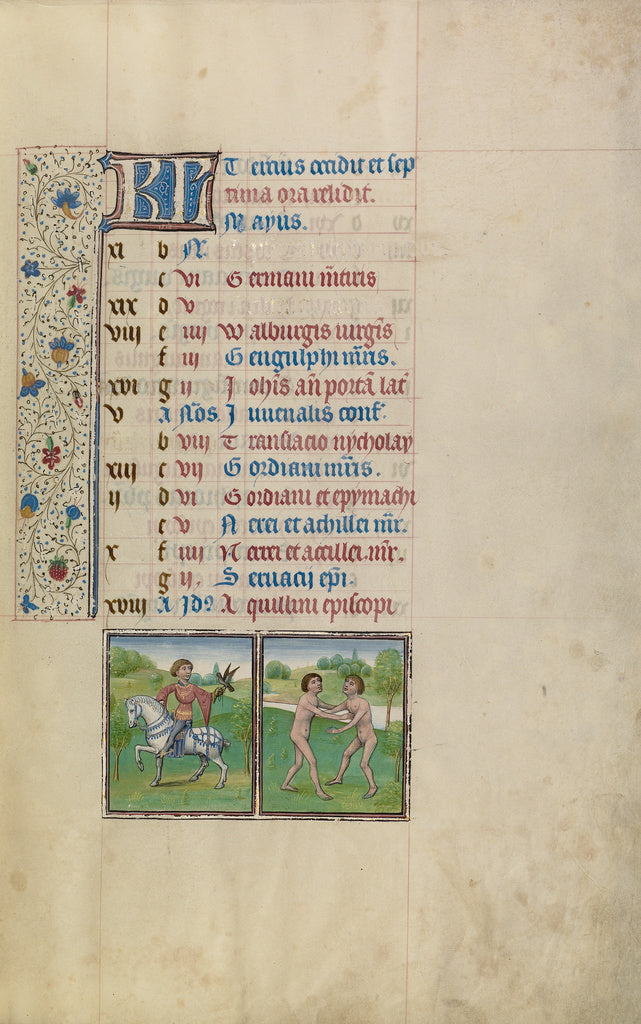 KL Tertius occidit et sep
tima ora relidit.
Mayus.
xi b N.
c vi Germani m̄tiris
xix d v
viii e iiii Walburgis uirgīs
f iii Gengulphi m̄ris.
xvi g ii Johīs an̄ portā lat̄
v a Nōs. Juuenalis conf.
b viii Translacio nycholay
xiii c vii Gordiani m̄ris.
ii d vi Gordiani et epymachi
e v Nerei et achillei mr̄.
x f iiii Nerei et accillei. mr̄.
g ii. Seruacij ep̄i.
xviii a Jdꝰ Aquilini episcopi